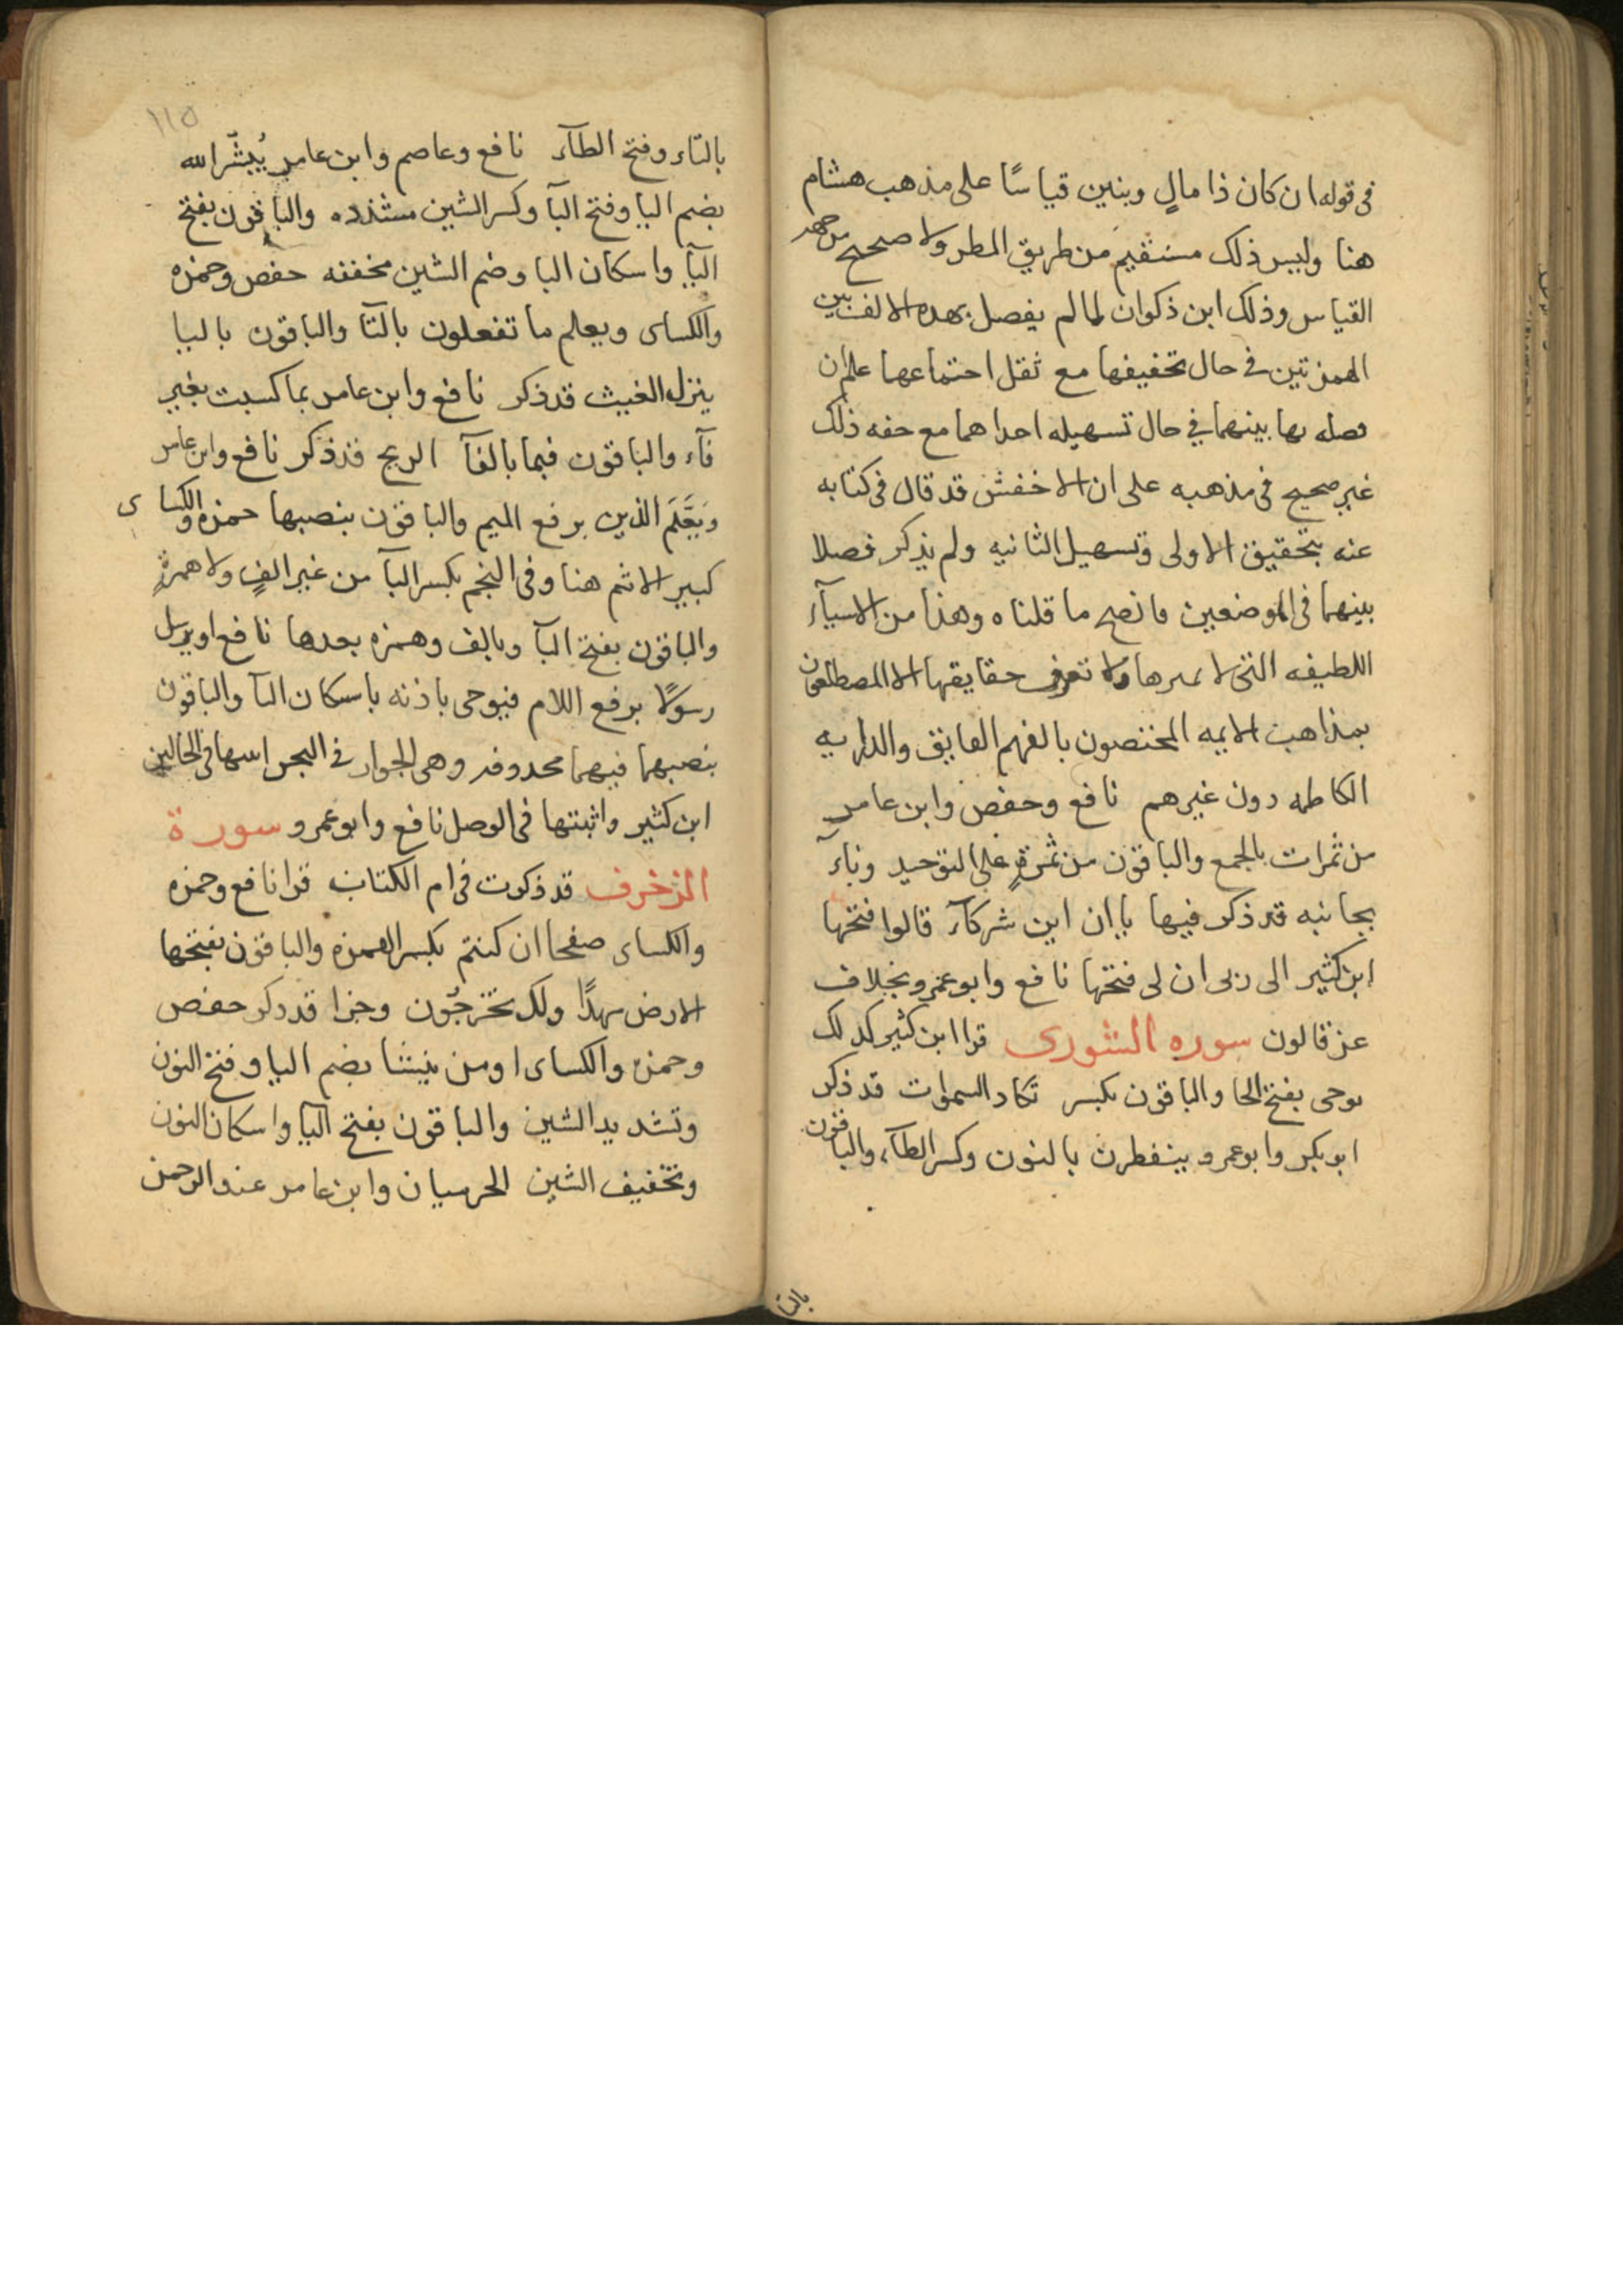 فى قوله ان كان ذا مالٍ وبنين قياسًا على مذهب هشام
هنا وليس ذلك مستقيم من طريق النظر ولا صحيح من جهه
القياس وذلك ابن ذكوان لما لم يفصل بهده الالف بين
الهمزتين فى حال تحقيقها مع ثقل احتماعها علم ان
فصله بها بينهما فى حال تسهيله احداهما مع خفه ذلك
غير صحيح فى مذهبه على ان الاخفش قد قال فى كتابه
عنه بتحقيق الاولى وتسهيل الثانيه ولم يذكر فصلا
بينهما فى الموضعين فاتضح ما قلناه وهذا من الاسيآء
اللطيفه التى لا ولا تعرف حقايقها الا المطلعون
بمذاهب الايمه المختصون بالفهم الفايق والدرايه
الكامله دون غيرهم نافع وحفص وابن عامر
من ثمرات بالجمع والباقون من ثمرةٍ على التوحيد وناء
بجانبه قد ذكر فيها ياان اين شركآء قالوا فتحها
ابن كثير الى ربى ان لى فتحها نافع وابو عمرو بخلاف
عن قالون سوره الشورى قرا ابن كثير كدلك
يوحى بفتح الحا والباقون بكسر تكاد السموات قد ذكر
ابو بكر وابو عمرو ينفطرن بالنون وكسر الطآء والباقون
بالتا
١١٥
بالتاء وفتح الطآء نافع وعاصم وابن عامر يُبشّر الله
بضم اليا وفتح البآ وكسر الشين مشدده والباقون بفتح
اليآ واسكان البا وضم الشين مخففه حفص وحمزه
والكساى ويعلم ما تفعلون بالتآ والباقون باليا
ينزل الغيث قد ذكر نافع وابن عامر بما كسبت بغير
فآء والباقون فبما بالفآ الريح قد ذكر نافع وابن عامر
ويَعْلَمَ الذين برفع الميم والباقون بنصبها حمزه والكساى
كبير الاثم هنا وفى النجم بكسر البآ من غير الفٍ ولا همزةٍ
والباقون بفتح البآ وبالف وهمزه بعدها نافع او يرسل
رسولًا برفع اللام فيوحى باذنه باسكان اليآ والباقون
بنصبهما فيهما محدوفه وهى الجوار فى البحر اسها فى الحالين
ابن كثير واثبتها فى الوصل نافع وابو عمرو سورة
الزخرف قد ذكرت فى ام الكتاب قرا نافع وحمزه
والكساى صفحا ان كنتم بكسر الهمزه والباقون بفتحها
الارض مهدًا ولك تخرجُون وجزا قد ذكر حفص
وحمزه والكساى اومن ينشا بضم اليا وفتح النون
وتشديد الشين والباقون بفتح اليآ واسكان النون
وتخفيف الشين الحرميان وابن عامر عند الرحمن